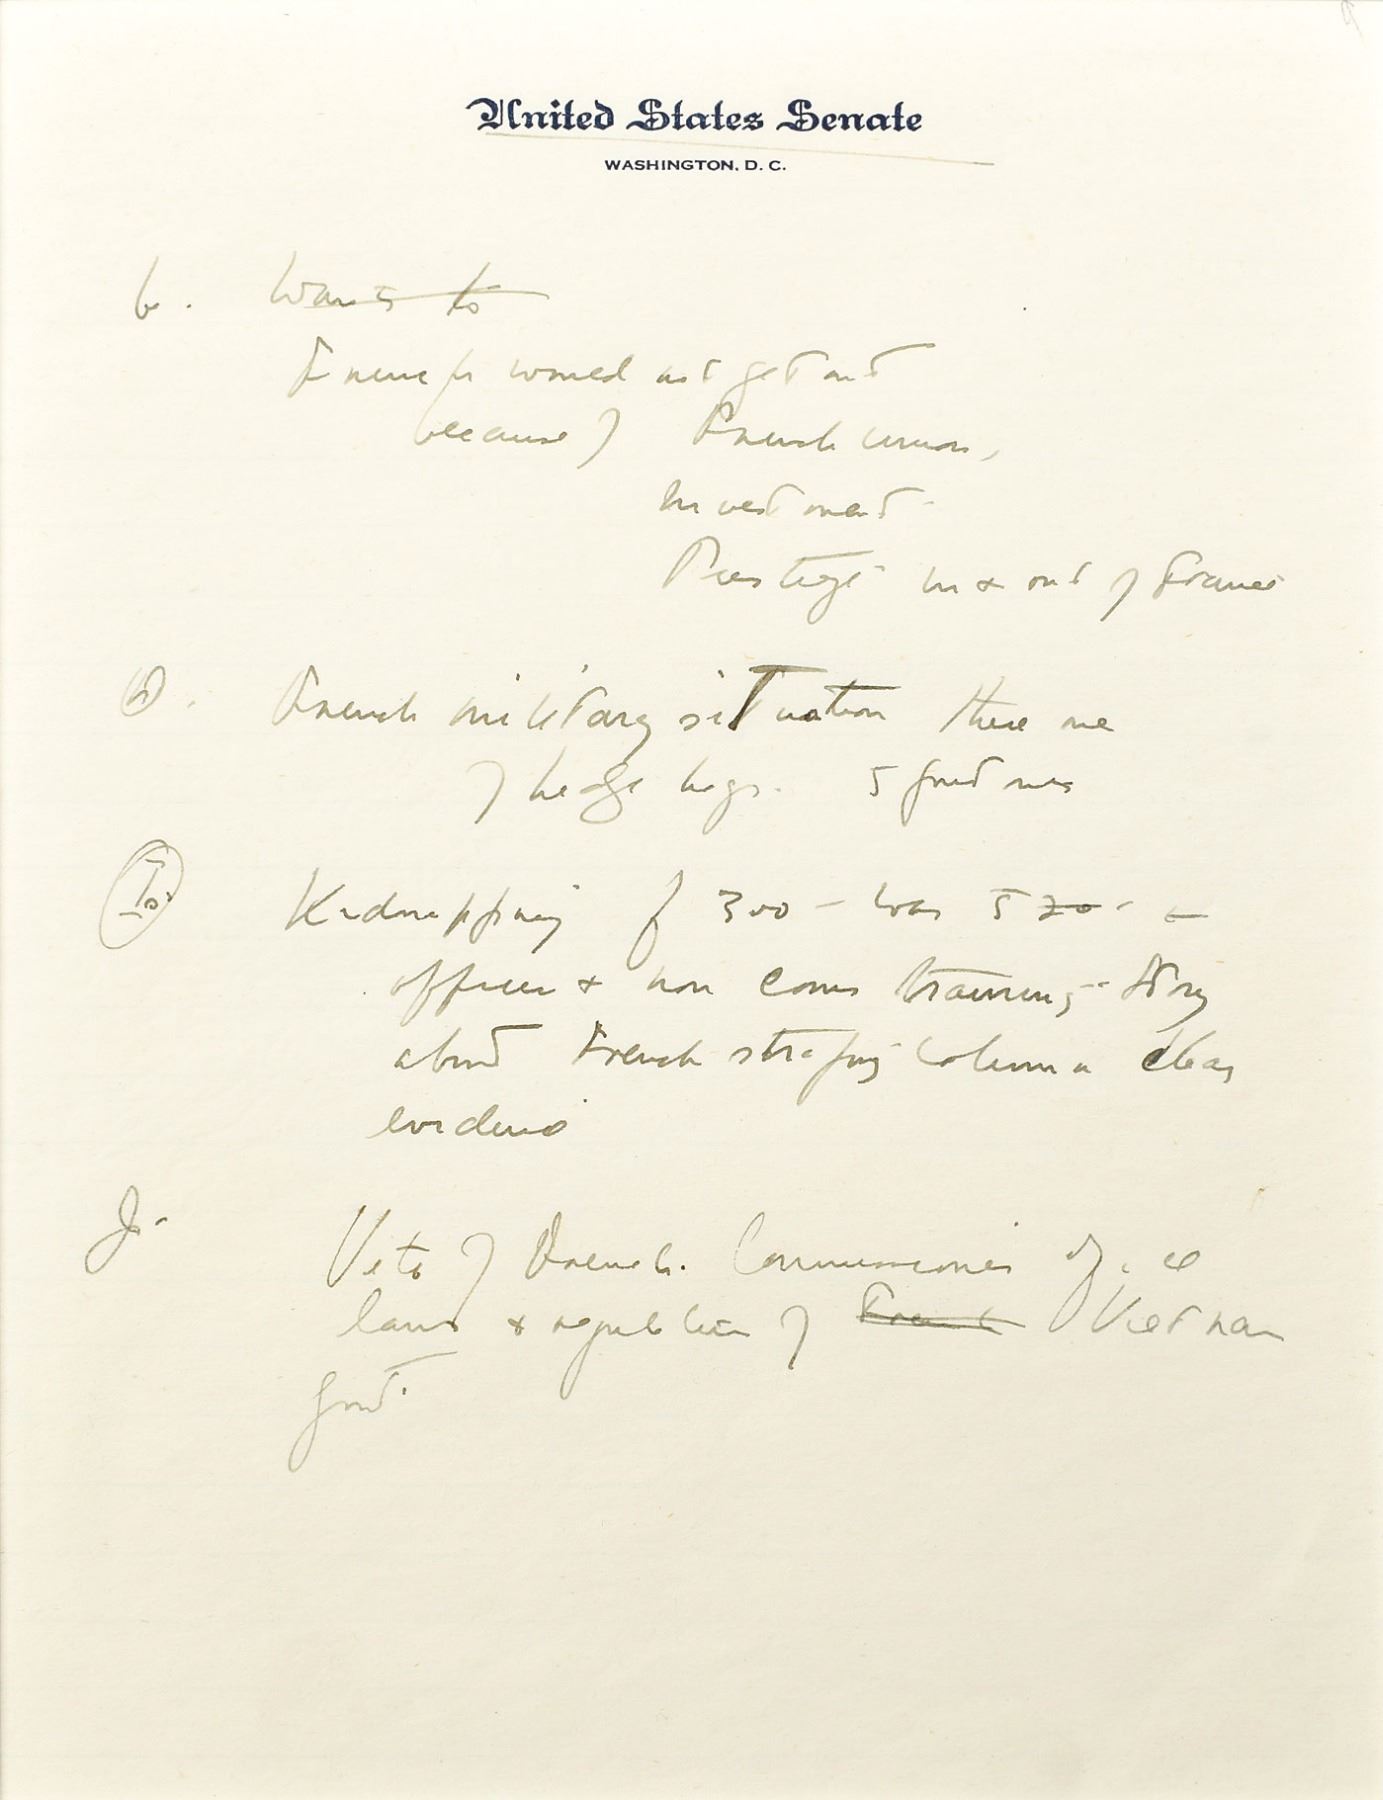 United States Senate
WASHINGTON, D. C.
6. Wants to
French would not get out
because of French union,
investment
Prestige in & out of France
French military situation there one
of hedge hogs. 5 good ones
Kidnapping of 300 - was 520 -
officer & non coms training - Story
about French strafing column clear
evidence
J.
Veto of French Commissioner of
laws & republic of French Vietnam
govt.